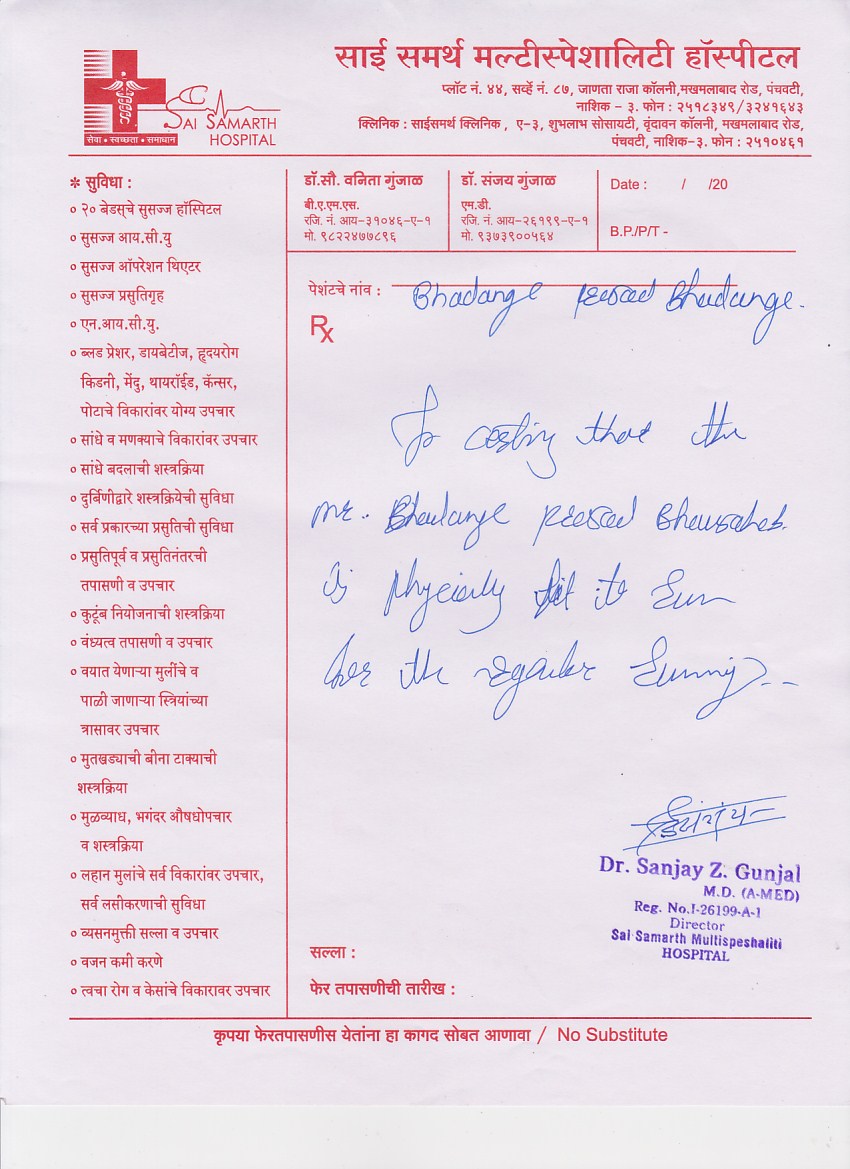 साई समर्थ मल्टीस्पेशालिटी हॉस्पीटल
प्लॉट नं. ४४, सर्व्हे नं. ८७, जाणता राजा कॉलनी,मखमलाबाद रोड, पंचवटी,
नाशिक - ३. फोन : २५१८३४९/३२४१६४३
क्लिनिक : साईसमर्थ क्लिनिक , ए-३, शुभलाभ सोसायटी, वृंदावन कॉलनी, मखमलाबाद रोड,
पंचवटी, नाशिक-३. फोन : २५१०४६१
SAI SAMARTH
HOSPITAL
सेवा • स्वच्छता • समाधान
* सुविधा :
२० बेडस्चे सुसज्ज हॉस्पिटल
सुसज्ज आय.सी.यु
सुसज्ज ऑपरेशन थिएटर
सुसज्ज प्रसुतिगृह
एन.आय.सी.यु.
ब्लड प्रेशर, डायबेटीज, हृदयरोग
किडनी, मेंदु, थायरॉईड, कॅन्सर,
पोटाचे विकारांवर योग्य उपचार
सांधे व मणक्याचे विकारांवर उपचार
सांधे बदलाची शस्त्रक्रिया
दुर्बिणीद्वारे शस्त्रक्रियेची सुविधा
सर्व प्रकारच्या प्रसुतिची सुविधा
प्रसुतिपूर्व व प्रसुतिनंतरची
तपासणी व उपचार
कुटूंब नियोजनाची शस्त्रक्रिया
वंध्यत्व तपासणी व उपचार
वयात येणाऱ्या मुलींचे व
पाळी जाणाऱ्या स्त्रियांच्या
त्रासावर उपचार
मुतखड्याची बीना टाक्याची
शस्त्रक्रिया
मुळव्याध, भगंदर औषधोपचार
व शस्त्रक्रिया
लहान मुलांचे सर्व विकारांवर उपचार,
सर्व लसीकरणाची सुविधा
व्यसनमुक्ती सल्ला व उपचार
वजन कमी करणे
त्वचा रोग व केसांचे विकारावर उपचार
डॉ.सौ. वनिता गुंजाळ
बी.ए.एम.एस.
रजि. नं. आय-३१०४६-ए-१
मो. ९८२२४७७८९६
डॉ. संजय गुंजाळ
एम.डी.
रजि. नं. आय-२६१९९-ए-१
मो. ९३७३९००५६४
Date : / /20
B.P./P/T -
पेशंटचे नांव : Bhadange Bhadange.
Rx
the
Mr. Bhadange Bhausaheb
is fit to run
for the regular running
Dr. Sanjay Z. Gunjal
M.D. (A-MED)
Reg. No.I-26199-A-1
Director
Sai Samarth Multispeshaliti
HOSPITAL
सल्ला :
फेर तपासणीची तारीख :
कृपया फेरतपासणीस येतांना हा कागद सोबत आणावा / No Substitute